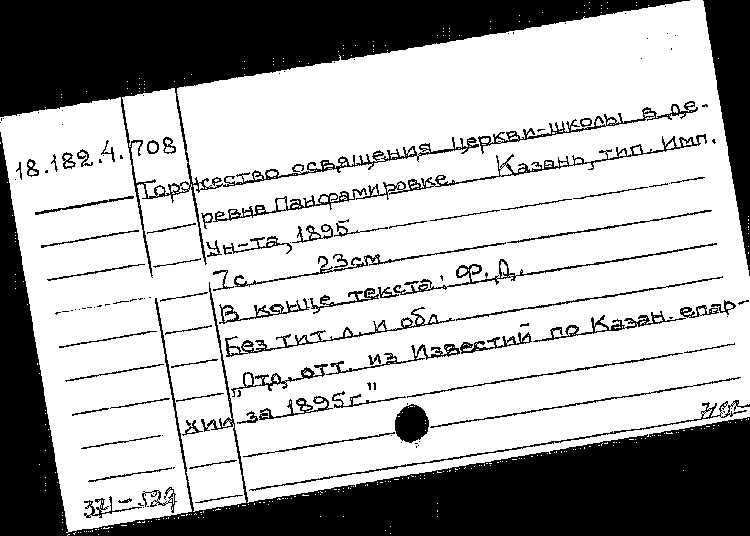 18.182.4.708
Торжество освящения церкви-школы в де-
ревне Панфамировке. Казань, тип. Имп.
Ун-та, 1895
7с. 23см.
В конце текста: Ф. Д.
Без тит. л. и обл.
"Отд. отт. из Известий по Казан. епар-
хии за 1895г."
371-529